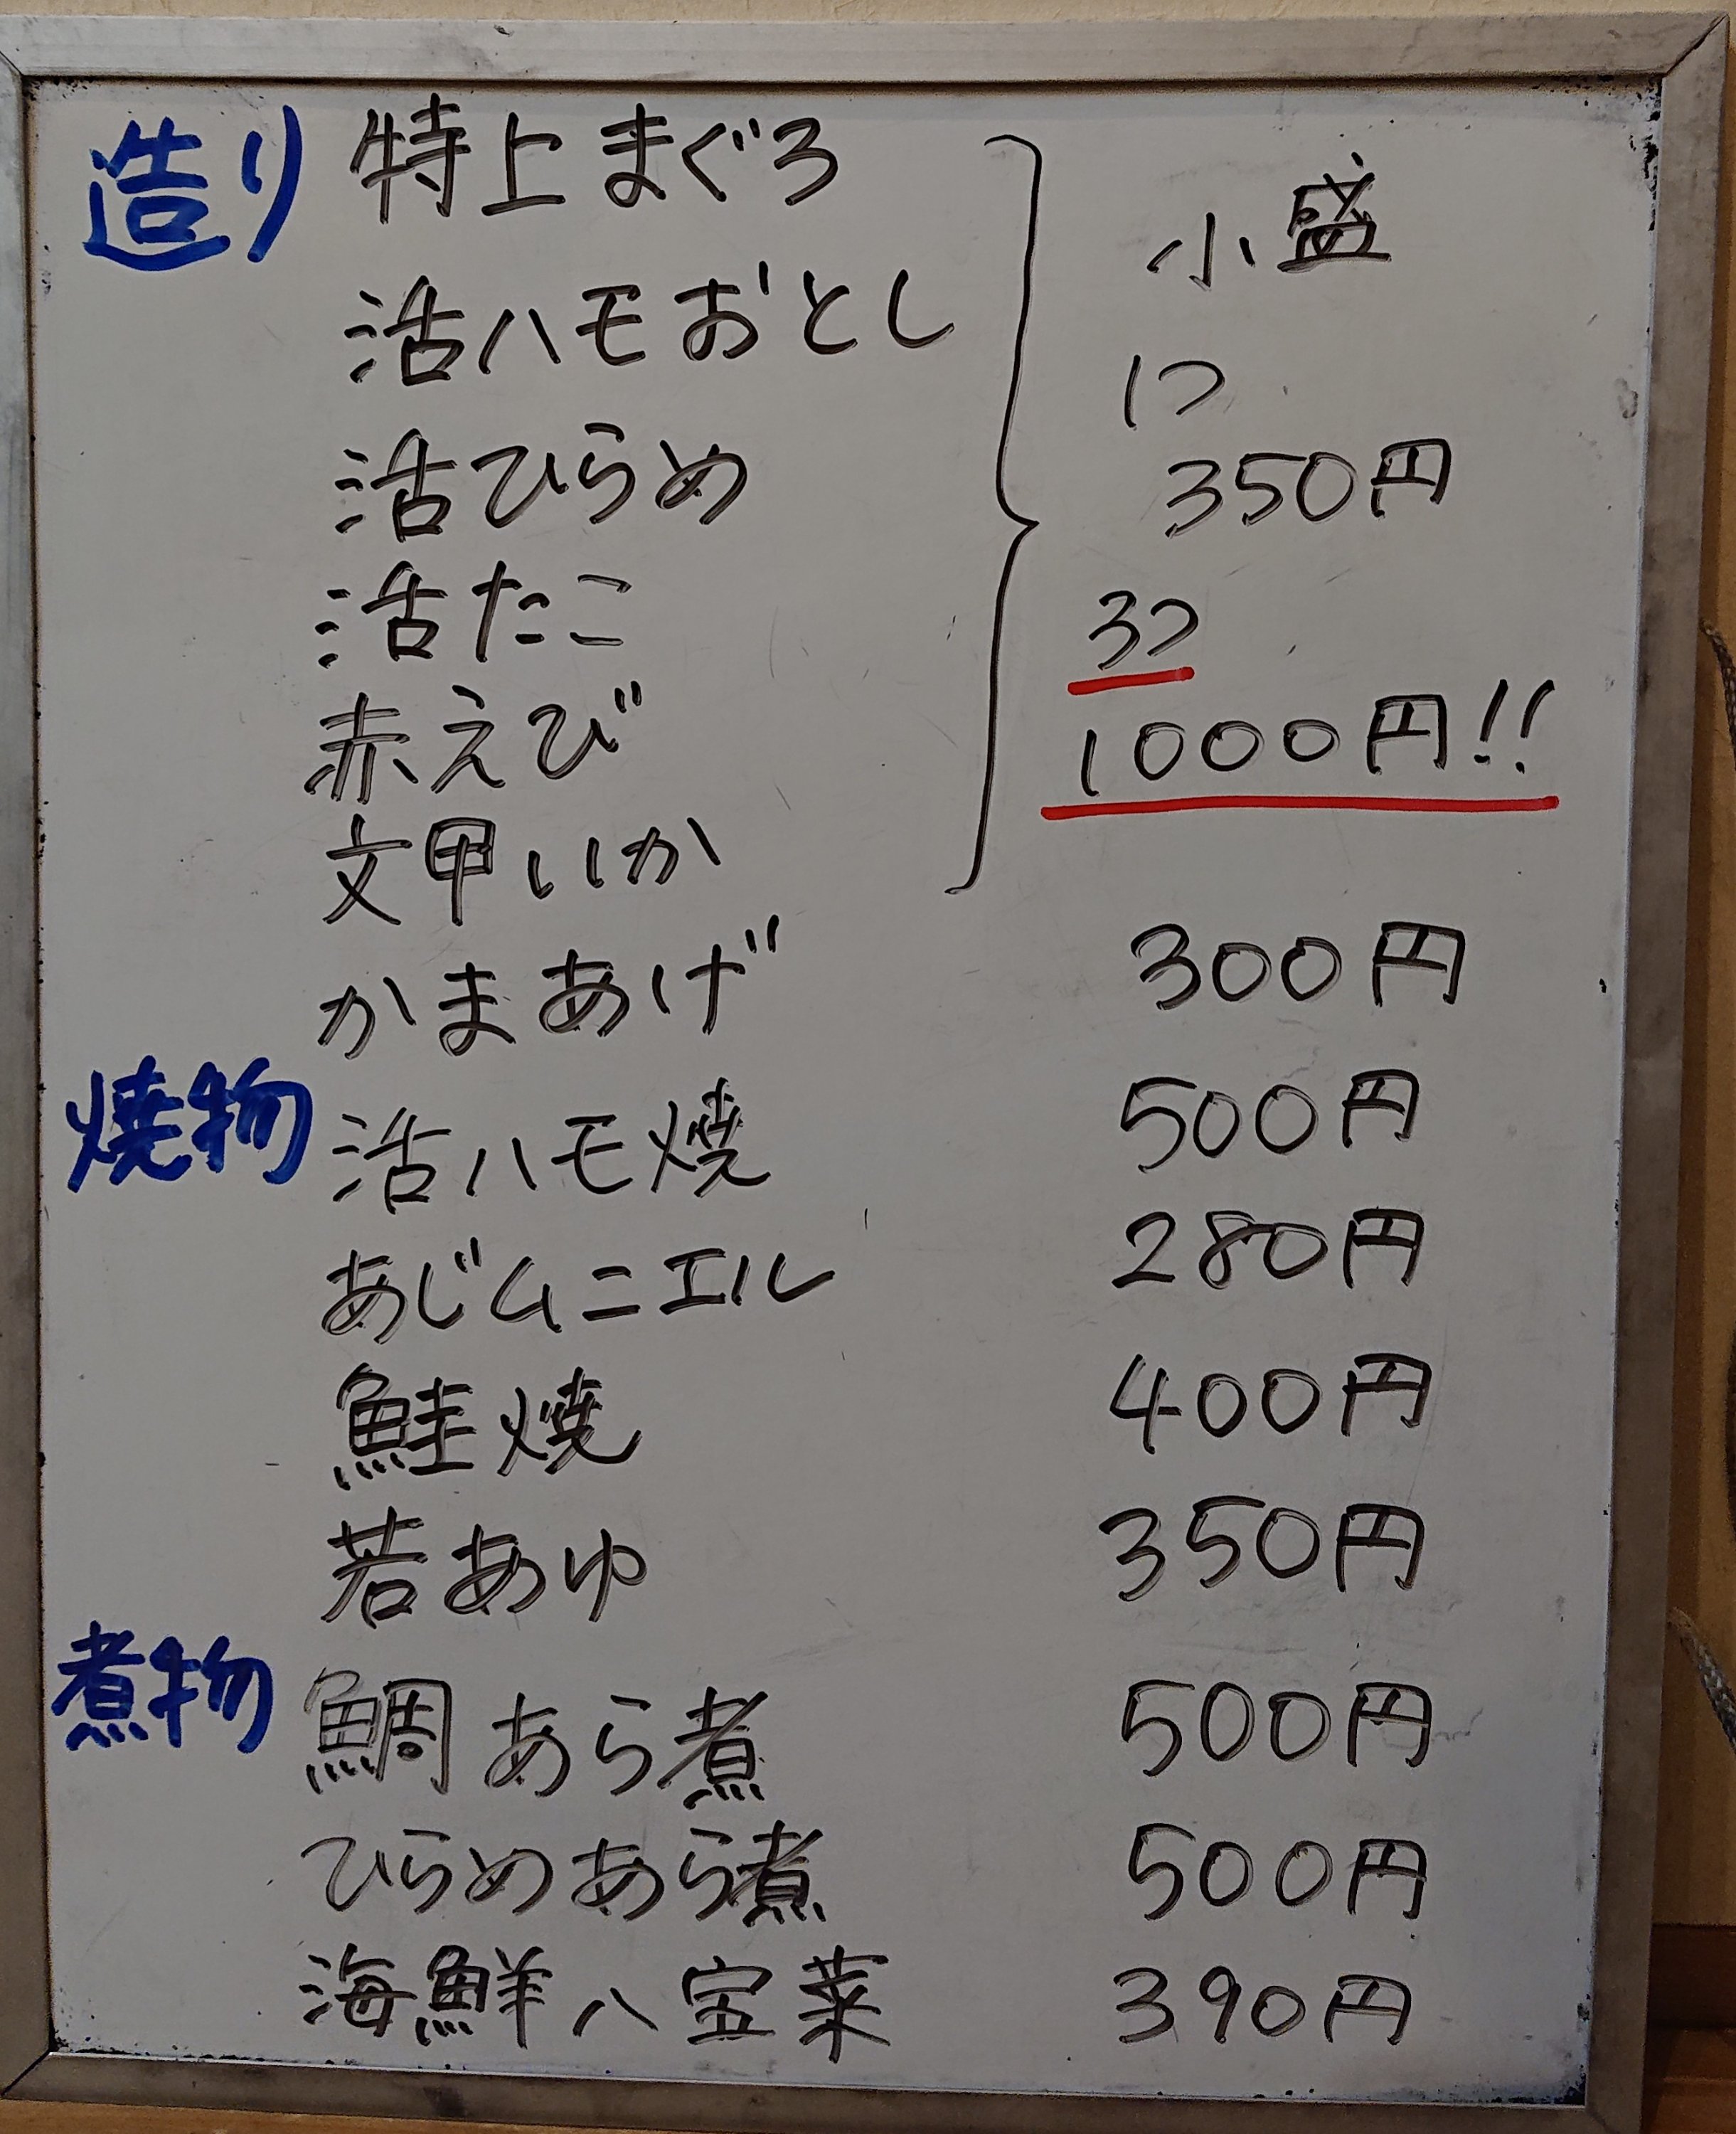 造り 特上まぐろ
活ハモおとし
活ひらめ
活たこ
赤えび
文甲いか
小盛
1つ
350円
3つ
1000円!!
かまあげ 300円
焼物 活ハモ焼 500円
あじムニエル 280円
鮭焼 400円
若あゆ 350円
煮物 鯛あら煮 500円
ひらめあら煮 500円
海鮮八宝菜 390円